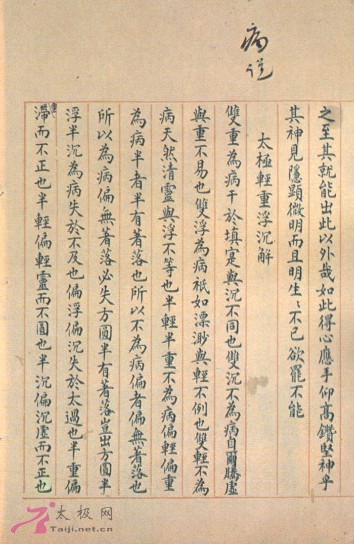 病说
之至其孰能出此以外哉如此得心應手仰高鑽堅神乎
其神見隱顯微明而且明生生不已欲罷不能
太極輕重浮沉解
雙重為病干於填寔與沉不同也雙沉不為病自爾騰虛
與重不易也雙浮為病祇如漂渺與輕不例也雙輕不為
病天然清靈與浮不等也半輕半重不為病偏輕偏重
為病半者半有著落也所以不為病偏者偏無著落也
所以為病偏無著落必失方圓半有著落豈出方圓半
浮半沉為病失於不及也偏浮偏沉失於太過也半重偏
滯而不正也半輕偏輕靈而不圓也半沉偏沉虛而不正也
太极网
Taiji.net.cn